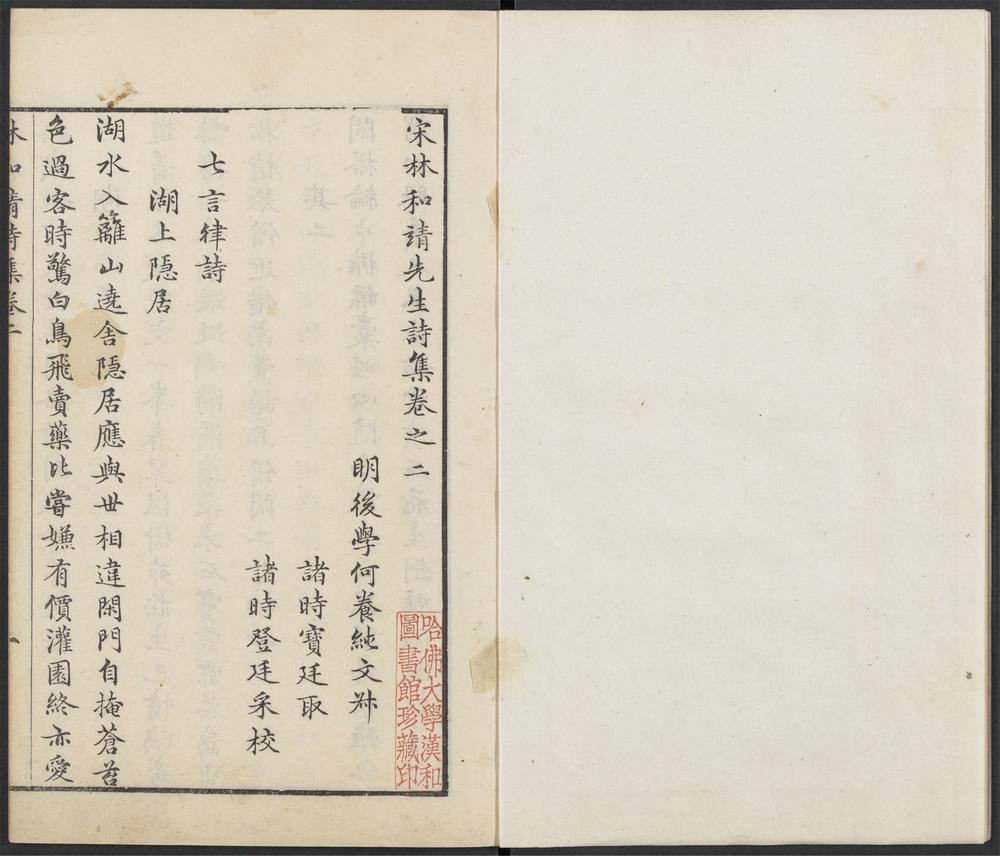 宋林和靖先生詩集卷之二
明後學何養純文叔
諸時寶廷取
諸時登廷采校
七言律詩
湖上隱居
湖水入籬山遶舍隱居應與世相違閑門自掩蒼苔
色過客時驚白鳥飛賣藥比嘗嫌有價灌園終亦愛
林和靖詩集卷二
一
哈佛大學漢和
圖書館珍藏印